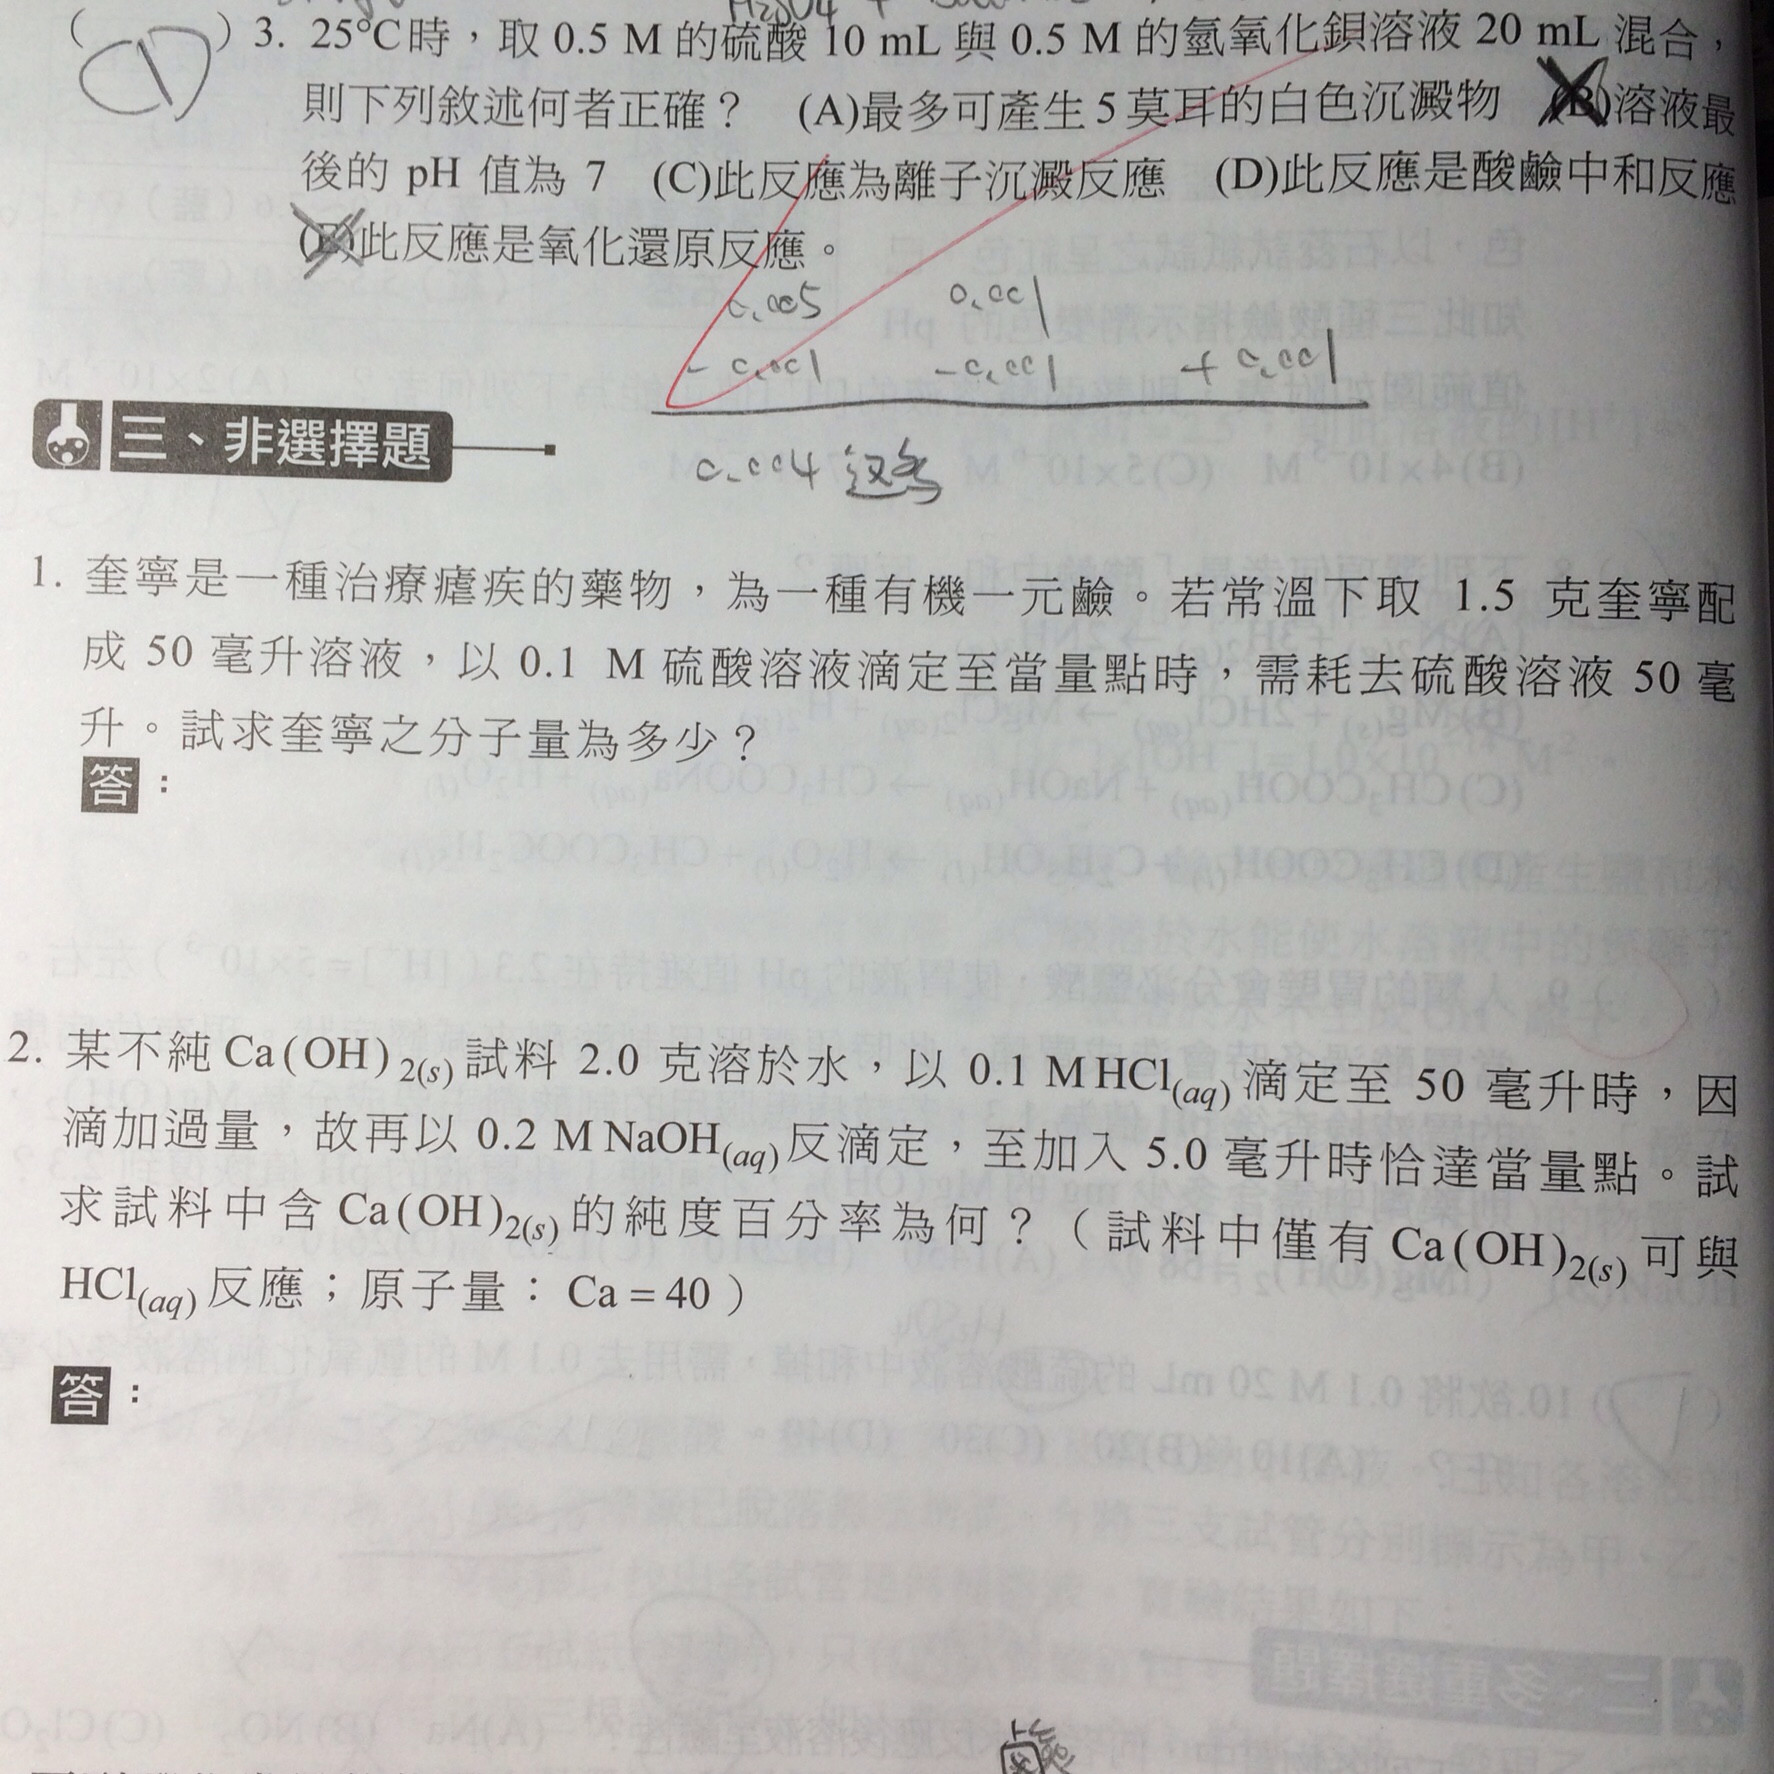 ( ) 3. 25°C時，取 0.5 M 的硫酸 10 mL 與 0.5 M 的氫氧化鋇溶液 20 mL 混合，
則下列敘述何者正確？ (A)最多可產生 5 莫耳的白色沉澱物 (B)溶液最
後的 pH 值為 7 (C)此反應為離子沉澱反應 (D)此反應是酸鹼中和反應
(E)此反應是氧化還原反應。
0.005 0.001
- 0.001 - 0.001 + 0.001
0.004
三、非選擇題
1. 奎寧是一種治療瘧疾的藥物，為一種有機一元鹼。若常溫下取 1.5 克奎寧配
成 50 毫升溶液，以 0.1 M 硫酸溶液滴定至當量點時，需耗去硫酸溶液 50 毫
升。試求奎寧之分子量為多少？
答：
2. 某不純 Ca(OH)2(s) 試料 2.0 克溶於水，以 0.1 M HCl(aq) 滴定至 50 毫升時，因
滴加過量，故再以 0.2 M NaOH(aq) 反滴定，至加入 5.0 毫升時恰達當量點。試
求試料中含 Ca(OH)2(s) 的純度百分率為何？（試料中僅有 Ca(OH)2(s) 可與
HCl(aq) 反應；原子量：Ca = 40）
答：